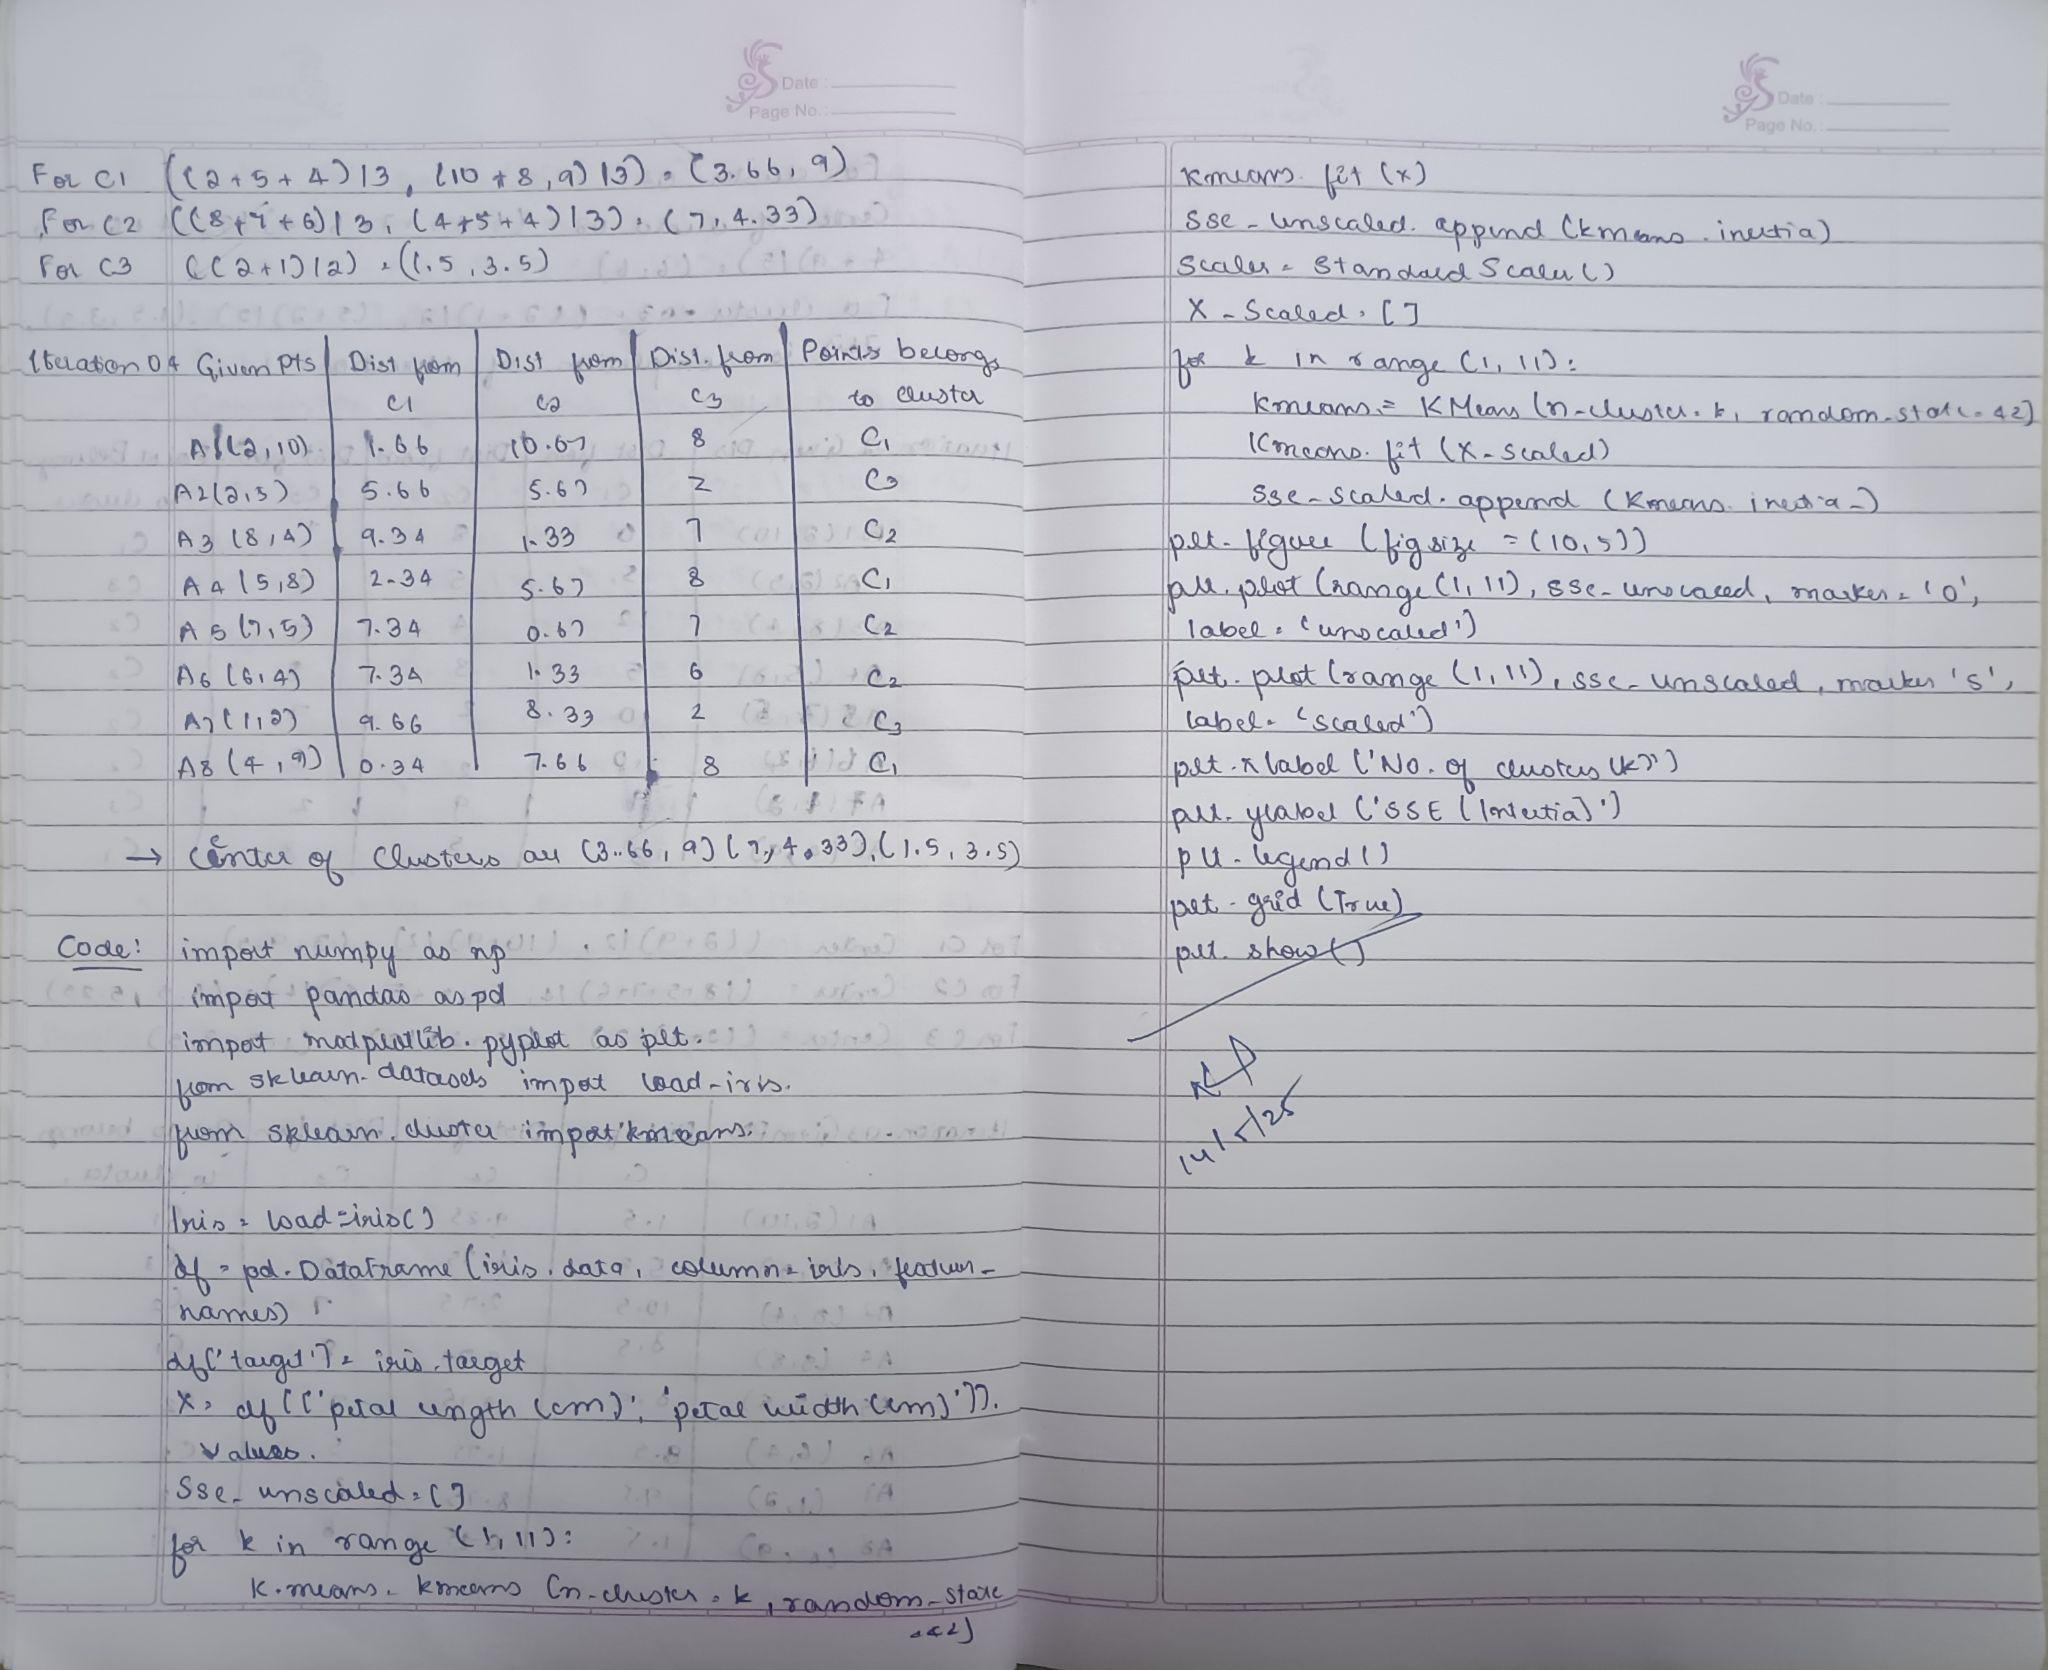 Date :
Page No. :
For C1 ((2+5+4)/3, (10+8,9)/3) = (3.66, 9)
For C2 ((8+7+6)/3, (4+5+4)/3) = (7, 4.33)
For C3 ((2+1)/2) = (1.5, 3.5)
Iteration 04 Given Pts Dist from C1 Dist from C2 Dist. from C3 Points belongs to cluster
A1(2,10) 1.66 10.67 8 C1
A2(2,5) 5.66 5.67 2 C3
A3 (8,4) 9.34 1.33 7 C2
A4 (5,8) 2.34 5.67 8 C1
A5 (7,5) 7.34 0.67 7 C2
A6 (6,4) 7.34 1.33 6 C2
A7(1,2) 9.66 8.33 2 C3
A8 (4,9) 0.34 7.66 8 C1
→ Center of Clusters are (3.66, 9) (7, 4.33), (1.5, 3.5)
Code: import numpy as np
import pandas as pd
import matplotlib.pyplot as plt.
from sklearn.datasets import load-iris.
from sklearn.cluster import kmeans.
Iris = load=iris()
df = pd.DataFrame (iris.data, column = iris. feature-
names)
df['target'] = iris.target
X = df[['petal length (cm)', 'petal width (cm)']].
values.
Sse_unscaled = []
for k in range (1,11):
k.means = kmeans (n-cluster = k, random-state
=42)
Date :
Page No. :
Kmeans. fit (x)
sse-unscaled. append (kmeans.inertia)
Scaler = Standard Scaler()
X-Scaled = []
for k in range (1, 11):
Kmeans = KMeans (n-cluster = k, random-state = 42)
Kmeans. fit (X-scaled)
sse-scaled. append (Kmeans. inertia-)
plt. figure (figsize = (10,5))
plt. plot (range (1,11), sse-unscaled, marker = 'o',
label = 'unscaled')
plt. plot (range (1,11), sse-unscaled, marker 's',
label = 'scaled')
plt. xlabel ('No. of clusters (k)')
plt. ylabel ('SSE (Intertia)')
plt. legend()
plt. grid (True)
plt. show()
14/5/25